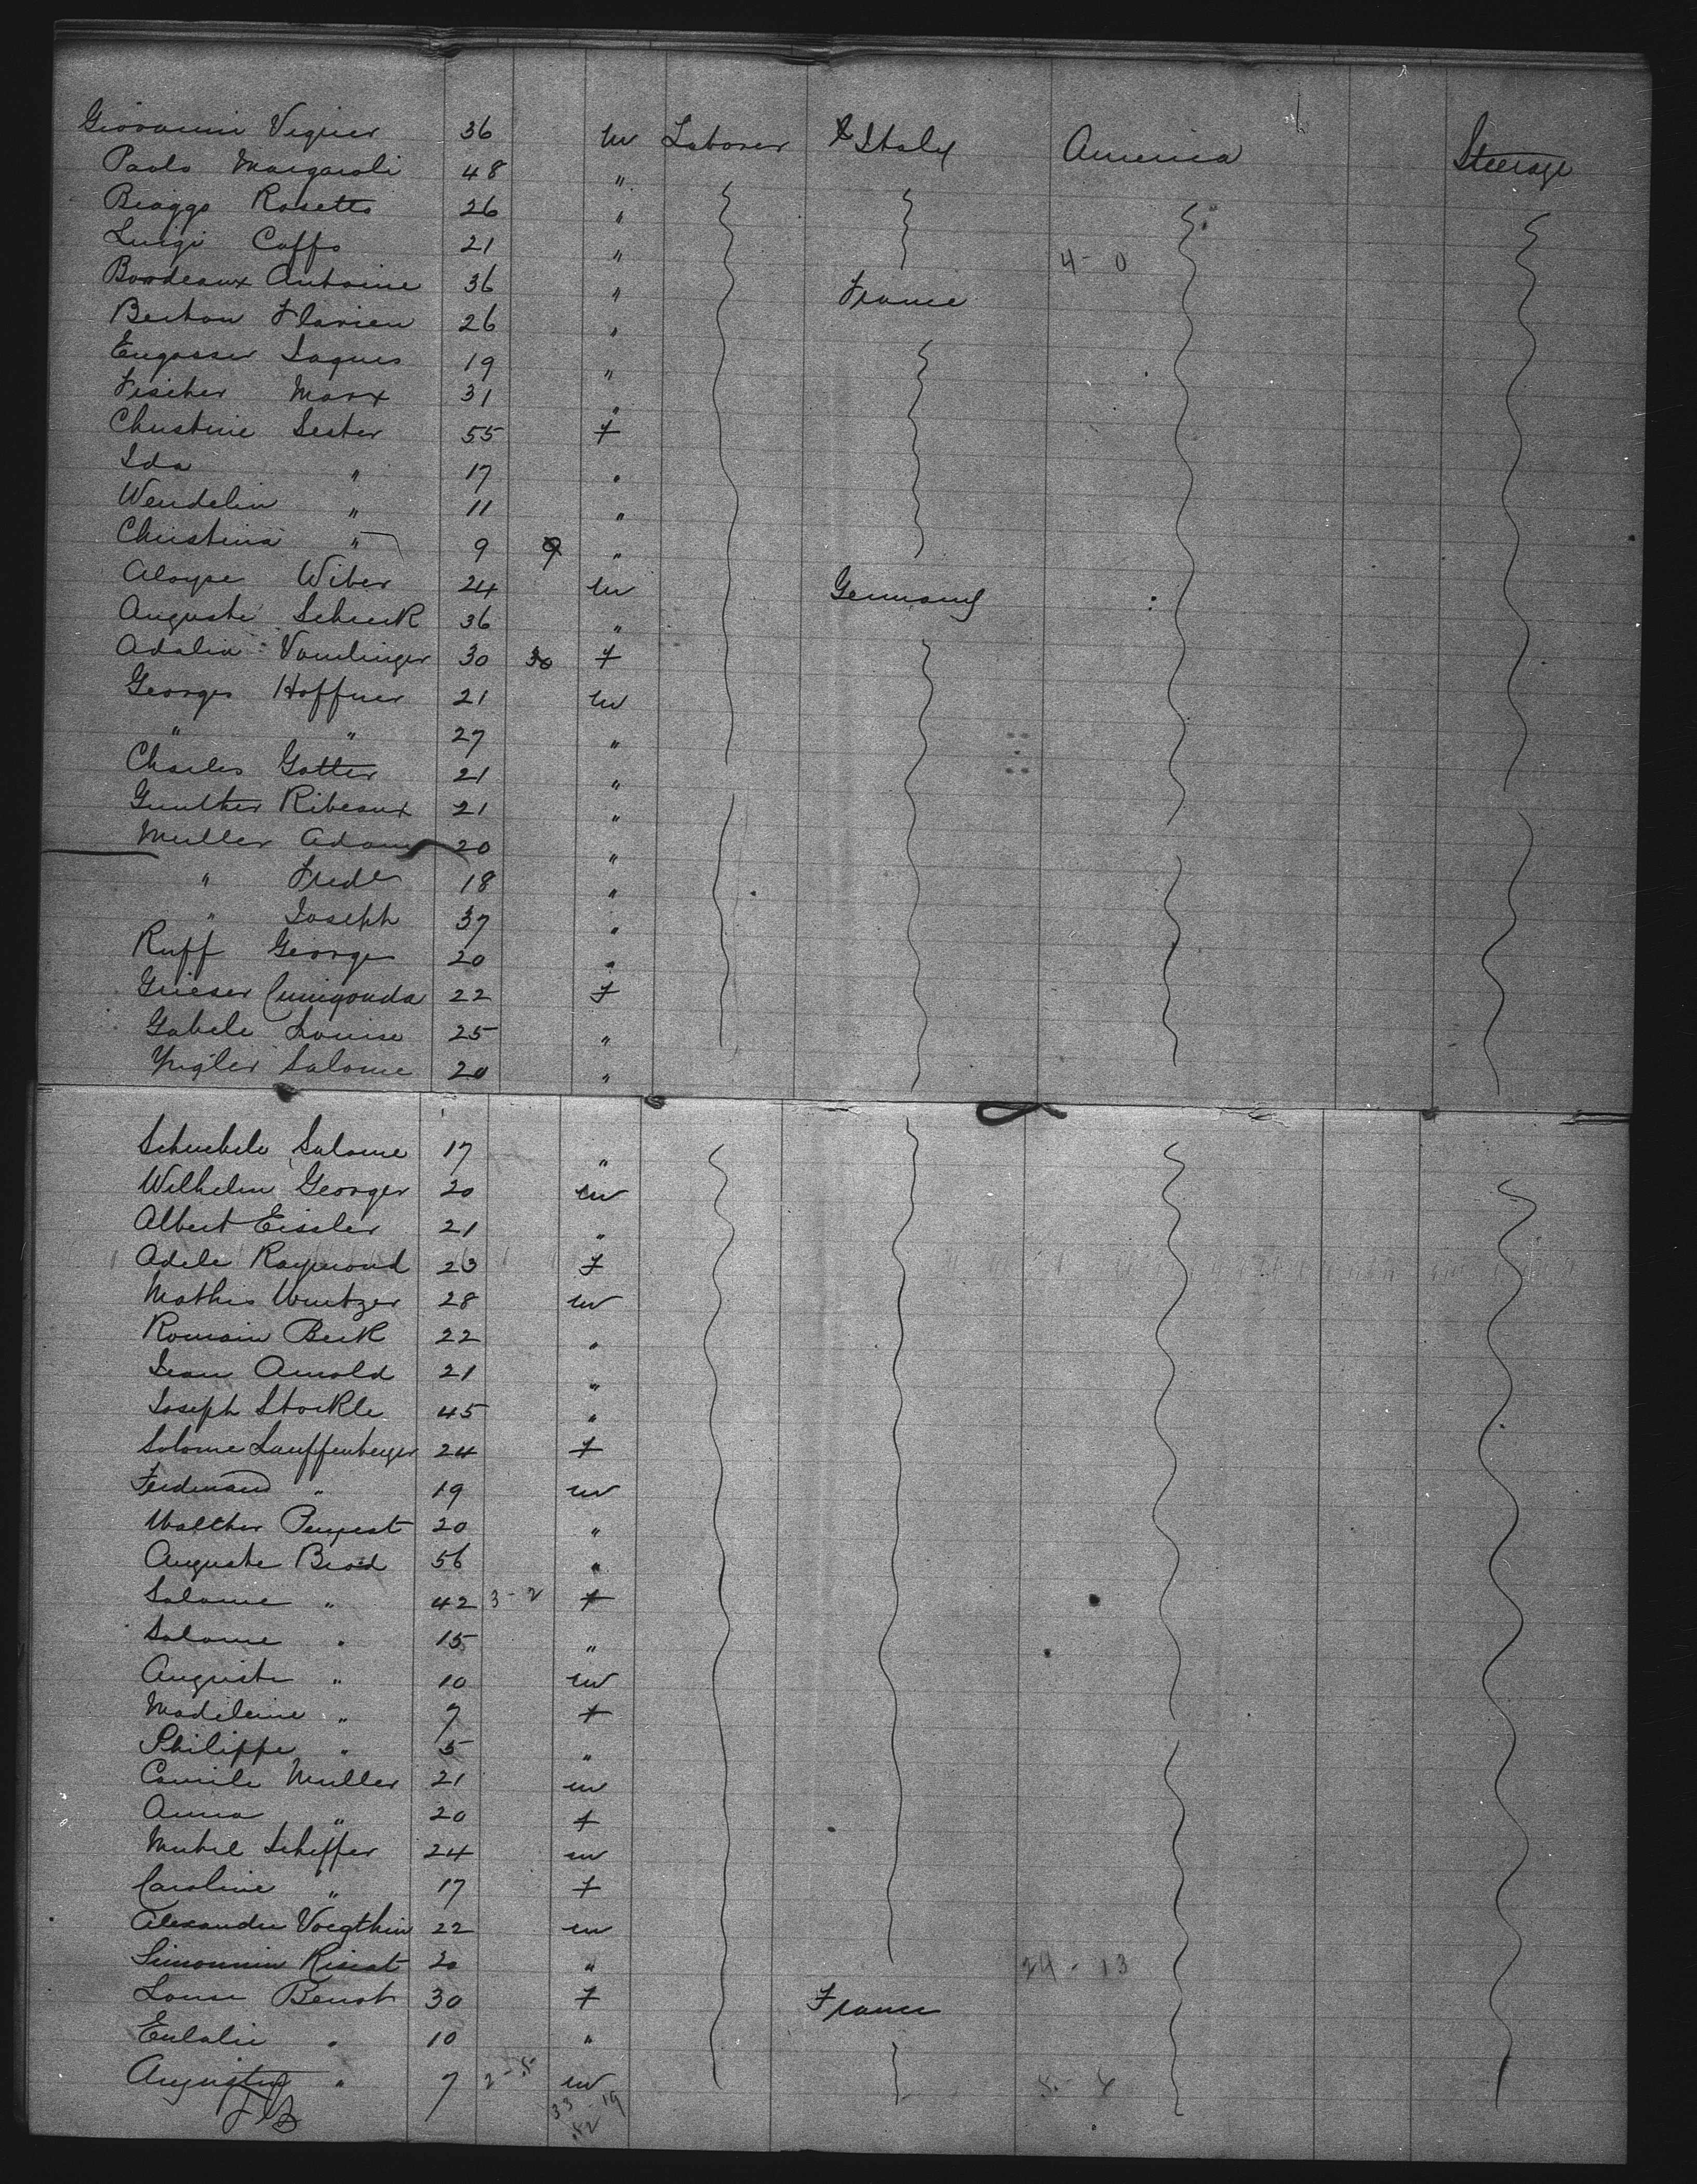 Giovanni Viguier 36 m Laborer Italy America Steerage
Paolo Margaroli 48 "
Biaggo Rosetto 26 "
Luigi Caffo 21 " 4-0
Bordeaux Antoine 36 " France
Berton Flavien 26 "
Engasser Jaques 19 "
Fischer Marx 31 "
Christine Sester 55 f
Ida " 17 "
Wendelin " 11 "
Christina " 9 9 "
Aloyse Wiber 24 m Germany
Auguste Schenk 36 "
Adalia 30 30 f
Georges Hoffner 21 m
" " 27 "
Charles Gotter 21 "
Gunther Ribeaux 21 "
Muller Adam 20 "
" Fred 18 "
" Joseph 37 "
Ruff George 20 "
Grieser Cunigonda 22 f
Gabele Louise 25 "
Salome 20 "
Salome 17 "
Wilhelm Georger 20 m
Albert Eissler 21 "
Adele Raymond 23 f
Mathis Wurtzer 28 m
Romain Beck 22 "
Jean Arnold 21 "
Joseph Stockle 45 "
Salome Lauffenberger 24 f
Ferdinand " 19 m
Walther 20 "
Auguste Brod 56 "
Salome " 42 3-2 f
Salome " 15 "
Auguste " 10 m
Madeleine " 7 f
Philippe " 5 "
Camile Muller 21 m
Anna " 20 f
Michel Schiffer 24 m
Caroline " 17 f
Alexandre Voegthin 22 m
Simonnin 20 " 24-13
Louise Benot 30 f France
Eulalie " 10 "
Augustin " 7 2- m
33 19